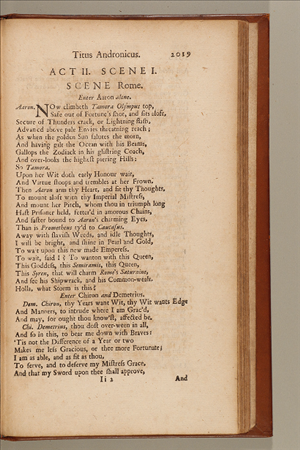 Titus Andronicus. 2019
ACT II. SCENE I.
SCENE Rome.
Enter Aaron alone.
Aaron. NOw climbeth Tamora Olympus top,
Safe out of Fortune's shot, and sits aloft,
Secure of Thunders crack, or Lightning flash,
Advanc'd above pale Envies threatning reach;
As when the golden Sun salutes the morn,
And having gilt the Ocean with his Beams,
Gallops the Zodiack in his glistring Coach,
And over-looks the highest piering Hills:
So Tamora.
Upon her Wit doth early Honour wait,
And Virtue stoops and trembles at her Frown.
Then Aaron arm thy Heart, and fit thy Thoughts,
To mount aloft with thy Imperial Mistress,
And mount her Pitch, whom thou in triumph long
Hast Prisoner held, fetter'd in amorous Chains,
And faster bound to Aaron's charming Eyes,
Than is Prometheus ty'd to Caucasus.
Away with slavish Weeds, and idle Thoughts,
I will be bright, and shine in Pearl and Gold,
To wait upon this new made Emperess.
To wait, said I? To wanton with this Queen,
This Goddess, this Semiramis, this Queen,
This Syren, that will charm Rome's Saturnine,
And see his Shipwrack, and his Common-weals.
Holla, what Storm is this?
Enter Chiron and Demetrius.
Dem. Chiron, thy Years want Wit, thy Wit wants Edge
And Manners, to intrude where I am Grac'd,
And may, for ought thou know'st, affected be.
Chi. Demetrius, thou dost over-ween in all,
And so in this, to bear me down with Braves:
'Tis not the Difference of a Year or two
Makes me less Gracious, or thee more Fortunate;
I am as able, and as fit as thou,
To serve, and to deserve my Mistress Grace,
And that my Sword upon thee shall approve,
Ii 2 And